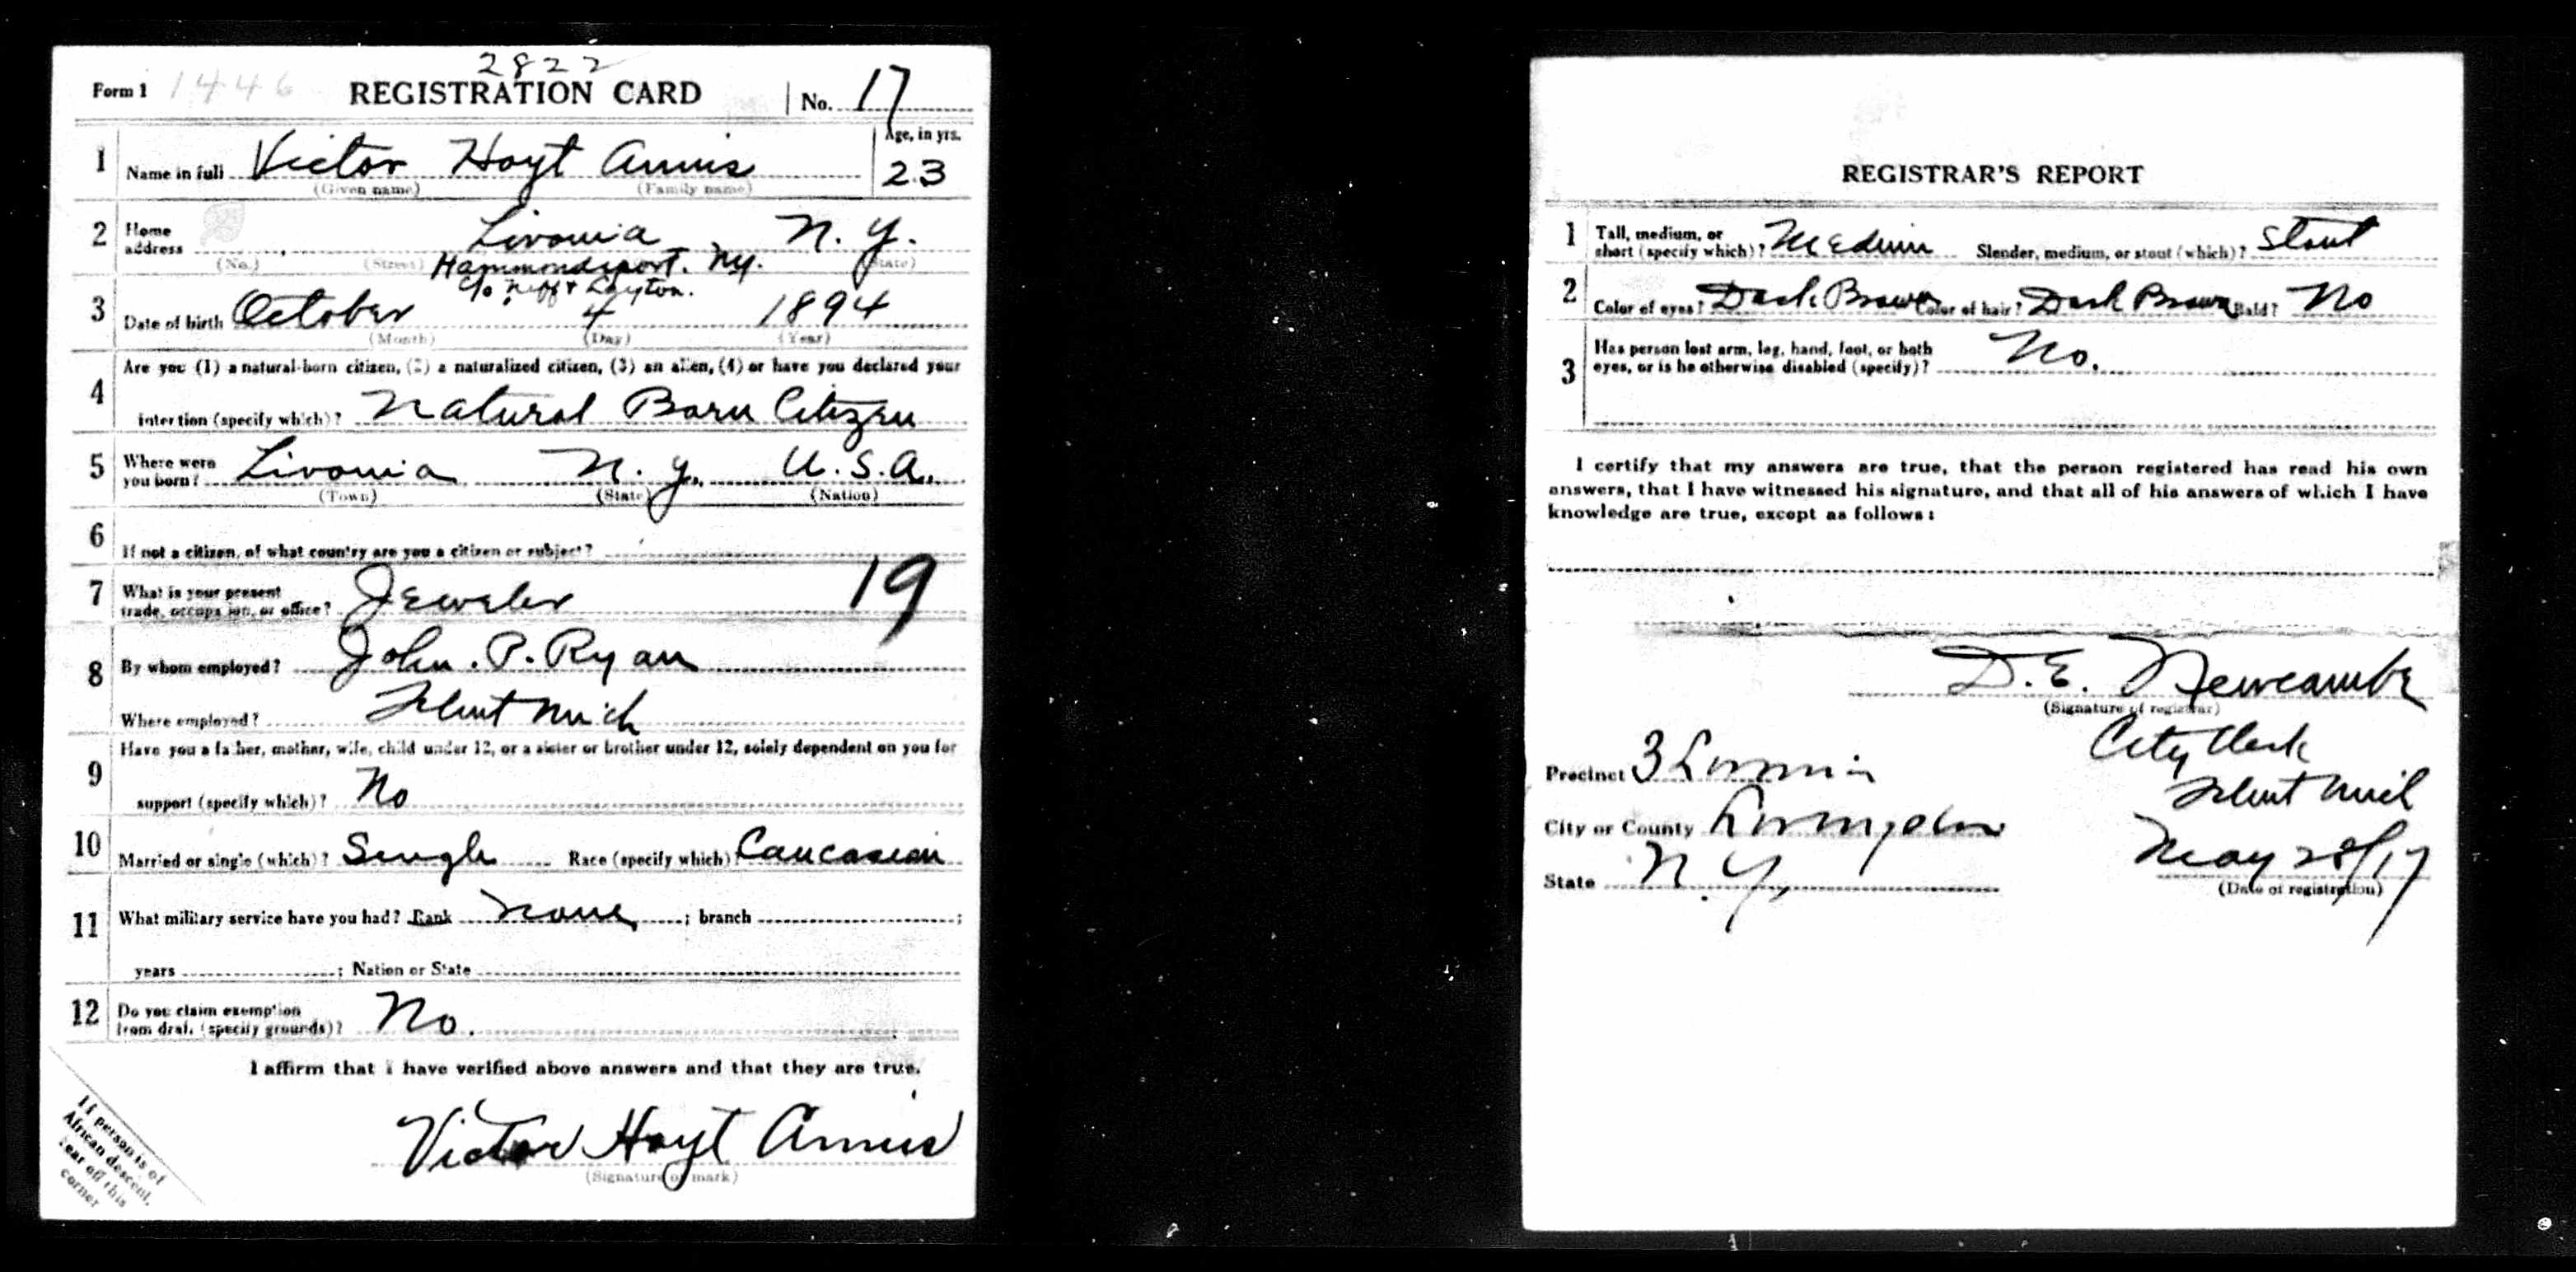 2822
Form 1 1446 REGISTRATION CARD No. 17
1 Name in full Victor Hoyt Annis Age, in yrs. 23
(Given name) (Family name)
2 Home address Livonia, N. Y.
(No.) (Street) Hammondsport. N.Y. (State)
c/o Neff & Layton.
3 Date of birth October 4 1894
(Month) (Day) (Year)
4 Are you (1) a natural-born citizen, (2) a naturalized citizen, (3) an alien, (4) or have you declared your
intention (specify which)? Natural Born Citizen
5 Where were you born? Livonia N. Y. U. S. A.
(Town) (State) (Nation)
6 If not a citizen, of what country are you a citizen or subject?
7 What is your present trade, occupation, or office? Jeweler 19
8 By whom employed? John. P. Ryan
Where employed? Flint Mich
9 Have you a father, mother, wife, child under 12, or a sister or brother under 12, solely dependent on you for
support (specify which)? No
10 Married or single (which)? Single Race (specify which)? Caucasian
11 What military service have you had? Rank None ; branch ;
years ; Nation or State
12 Do you claim exemption from draft (specify grounds)? No.
I affirm that I have verified above answers and that they are true.
Victor Hoyt Annis
(Signature or mark)
If person is of
African descent,
tear off this
corner
REGISTRAR'S REPORT
1 Tall, medium, or short (specify which)? Medium Slender, medium, or stout (which)? Stout
2 Color of eyes? Dark Brown Color of hair? Dark Brown Bald? No
3 Has person lost arm, leg, hand, foot, or both
eyes, or is he otherwise disabled (specify)? No.
I certify that my answers are true, that the person registered has read his own
answers, that I have witnessed his signature, and that all of his answers of which I have
knowledge are true, except as follows:
D. E. Newcombe
(Signature of registrar)
City Clerk
Precinct 3 Livonia
Flint Mich
City or County Livingston
May 28/17
State N. Y.
(Date of registration)